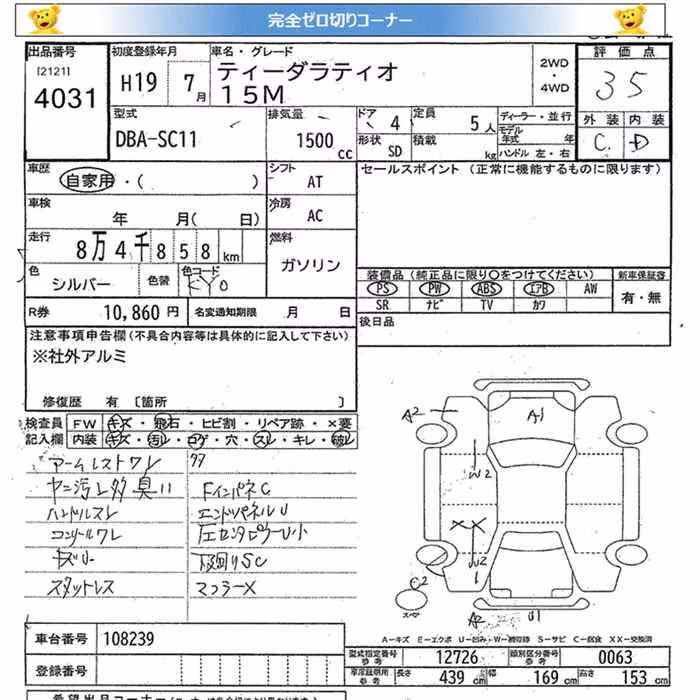 完全ゼロ切りコーナー
出品番号
[2121]
4031
初度登録年月
H19 7月
車名・グレード
ティーダラティオ
15M
2WD
・
4WD
評価点
35
外装 内装
C. D
型式
DBA-SC11
排気量
1500 cc
ドア 4
形状 SD
定員 5人
積載 kg
ディーラー・並行
モデル年式 年
ハンドル 左・右
車歴
自家用・( )
シフト
AT
セールスポイント (正常に機能するものに限ります)
車検
年 月( 日)
冷房
AC
走行
8万4千858km
燃料
ガソリン
色
シルバー
色替
色コード
KY0
装備品 (純正品に限り○をつけてください)
PS PW ABS エアB AW
SR ナビ TV カワ
新車保証書
有・無
R券 10,860円
名変通知期限 月 日
後日品
注意事項申告欄(不具合内容等は具体的に記入して下さい)
※社外アルミ
修復歴 有 [箇所 ]
検査員記入欄
FW キズ・飛石・ヒビ割・リペア跡・×要
内装 キズ・汚レ・コゲ・穴・スレ・キレ・破レ
アームレストワレ
ヤニ汚レ多 臭い
ハンドルスレ
コンソールワレ
キズU
スタットレス
FインパネC
エンドパネルU
左センタピラーU小
下廻りSC
マフラーX
A2
A1
W2
XX
W2
C2
スペア
A2
U1
A-キズ E-エクボ U-凹み W-補修跡 S-サビ C-腐食 XX-交換済
車台番号 108239
登録番号
型式指定番号参考 12726
類別区分番号参考 0063
長さ 439cm 幅 169cm 高さ 153cm